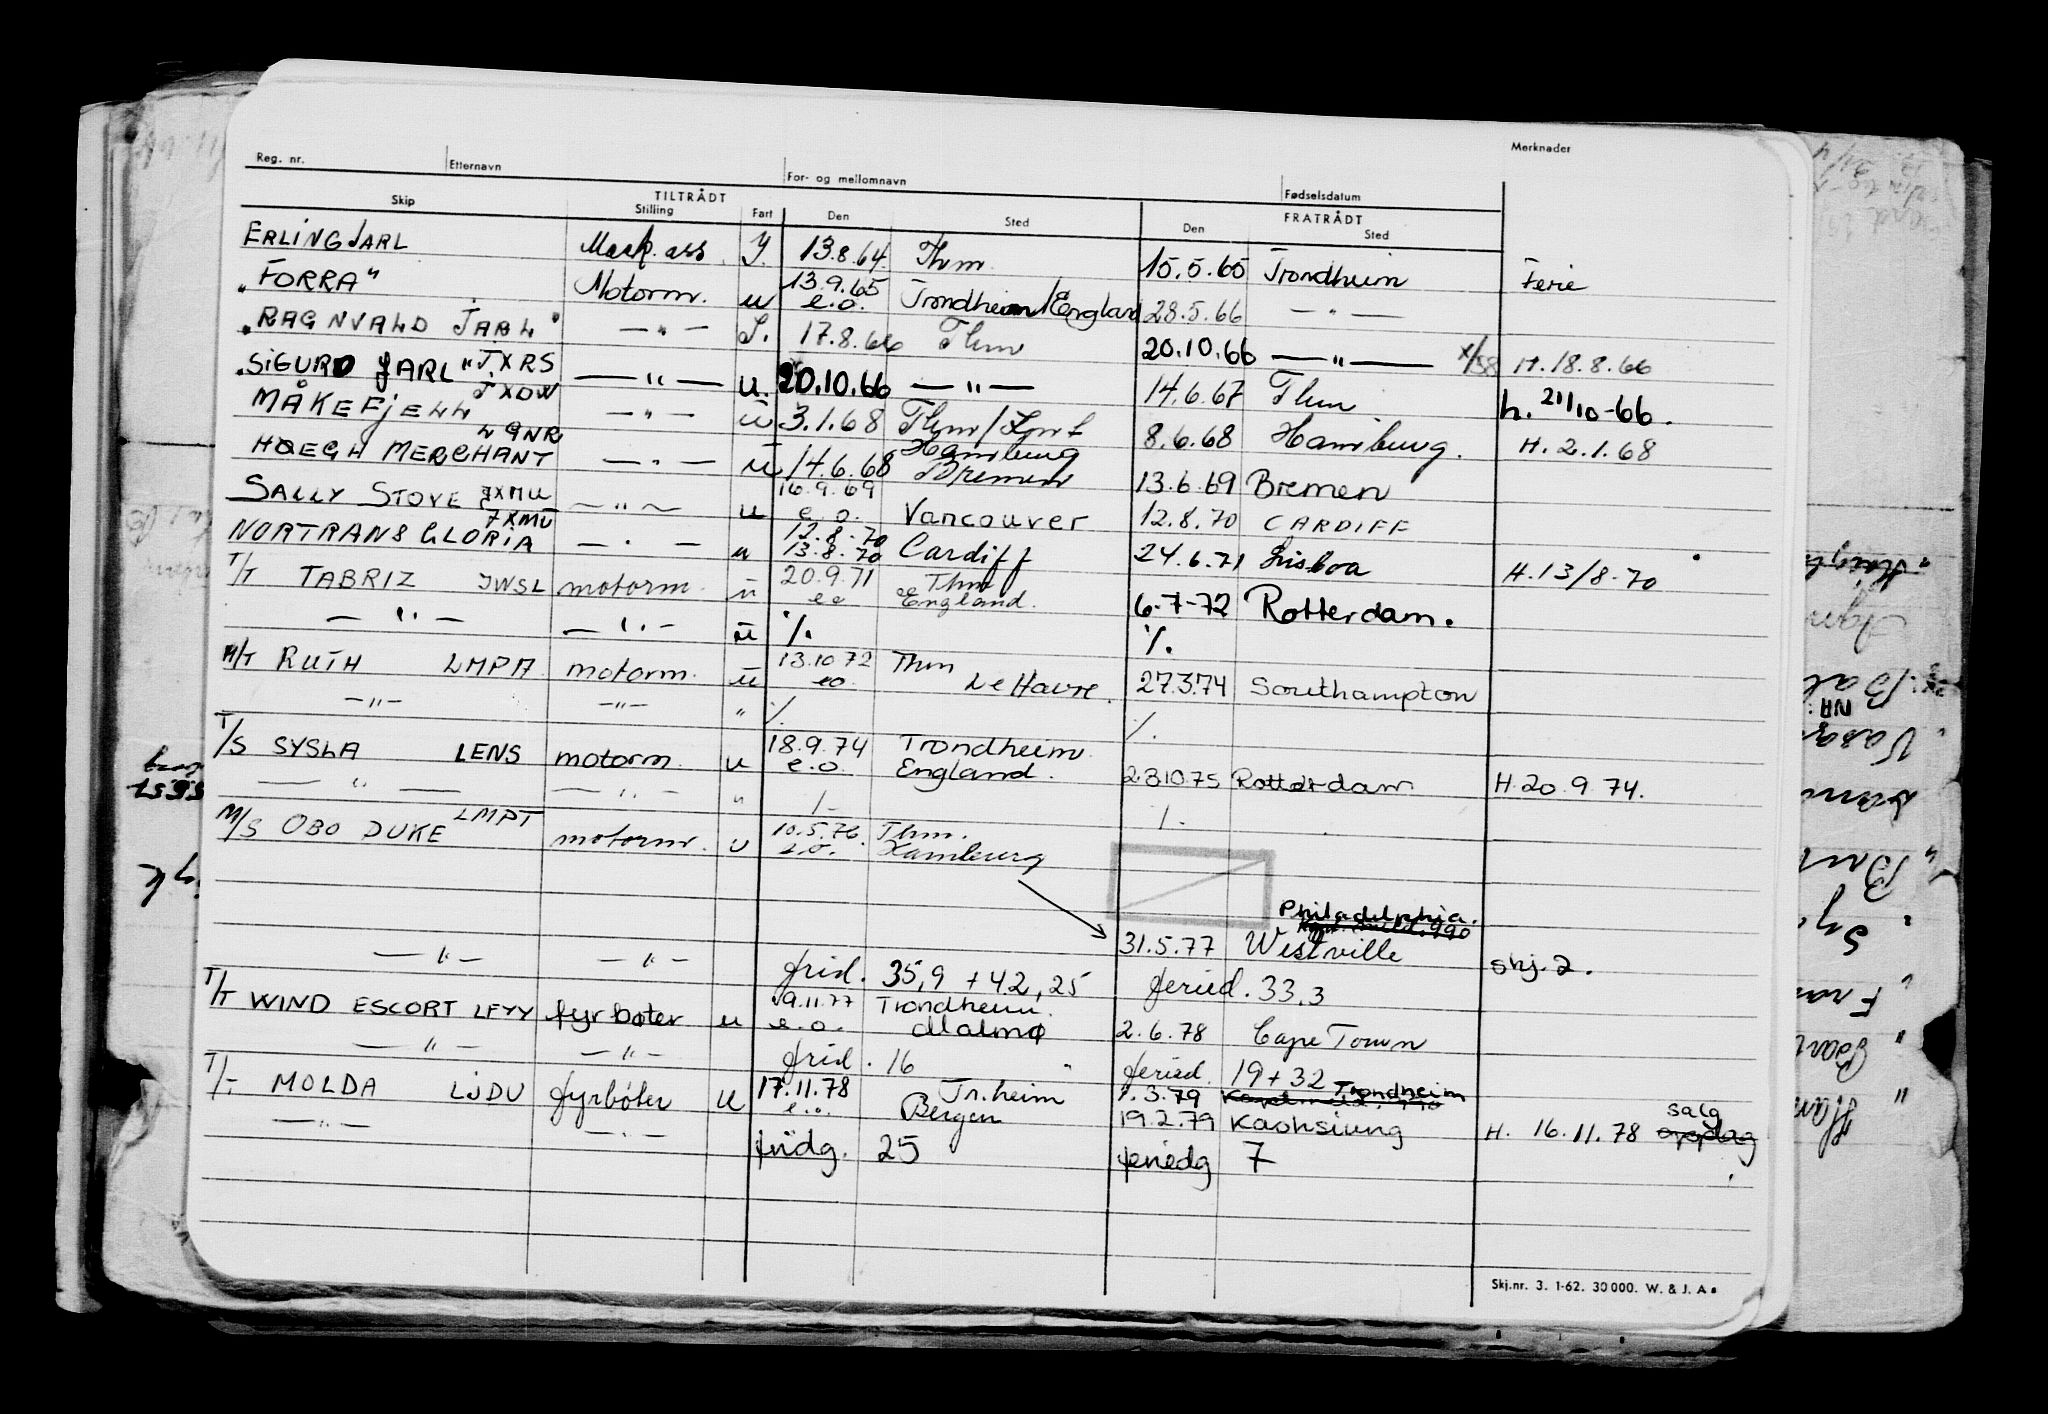 Reg. nr. Etternavn For- og mellomnavn Fødselsdatum Merknader
TILTRÅDT FRATRÅDT
Skip Stilling Fart Den Sted Den Sted
ERLING JARL Mask. ass. I. 13.8.64 Thm. 15.5.65 Trondheim Ferie
"FORRA" Motorm. u 13.9.65 e.o. Trondheim/England 28.5.66 — " —
"RAGNVALD JARL" — " — I. 17.8.66 Thm 20.10.66 — " — H. 18.8.66
"SIGURD JARL" JXRS — " — u. 20.10.66 — " — 14.6.67 Thm. h. 21/10-66.
MÅKEFJELL JXOW — " — u 3.1.68 Thm/ 8.6.68 Hamburg. H. 2.1.68
HOEGH MERCHANT LGNR — " — u 14.6.68 Hamburg Bremen 13.6.69 Bremen
SALLY STOVE JXMU — " — u 16.9.69 e.o. Vancouver 12.8.70 CARDIFF
NORTRANS GLORIA JXMU — " — u 12.8.70 13.8.70 Cardiff 24.6.71 Lisboa H. 13/8-70
T/T TABRIZ JWSL motorm. u 20.9.71 eo Thm England. 6-7-72 Rotterdam.
— " — — " — u ./. ./.
M/T RUTH LMPA motorm. u 13.10.72 eo. Thm Le Havre. 27.3.74 Southampton
— " — — " — " ./. ./.
T/S SYSLA LENS motorm. u 18.9.74 e.o. Trondheim. England. 23.10.75 Rotterdam H. 20.9.74.
— " — — " — " /- /.
M/S OBO DUKE LMPT motorm. u 10.5.76. e.o. Thm. Hamburg
Philadelphia.
— " — — " — 31.5.77 Westville skj. 2.
frid. 35,9 + 42,25 feried. 33,3
T/T WIND ESCORT LFYY fyrbøter u 19.11.77 e.o. Trondheim. Malmø 2.6.78 Cape Town
— " — — " — frid. 16 feried. 19+32
T/- MOLDA LJDU fyrbøter u 17.11.78 e.o. Tr.heim Bergen 1.3.79 Trondheim
— " — — " — 19.2.79 Kaohsiung H. 16.11.78 salg oppdag
fridg. 25 feriedg 7
Skj.nr. 3. 1-62. 30 000. W. & J. A.